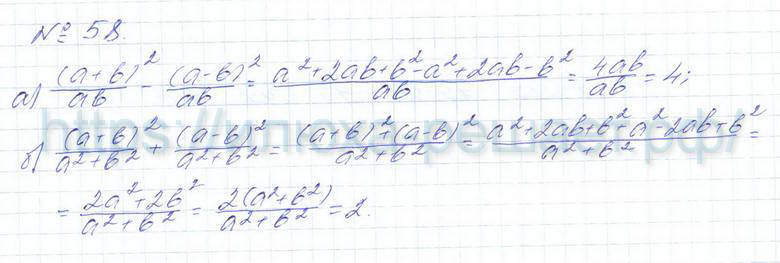 № 58.
а) (a+b)²/ab - (a-b)²/ab = a²+2ab+b²-a²+2ab-b²/ab = 4ab/ab = 4;
б) (a+b)²/a²+b² + (a-b)²/a²+b² = (a+b)²+(a-b)²/a²+b² = a²+2ab+b²+a²-2ab+b²/a²+b² =
= 2a²+2b²/a²+b² = 2(a²+b²)/a²+b² = 2.